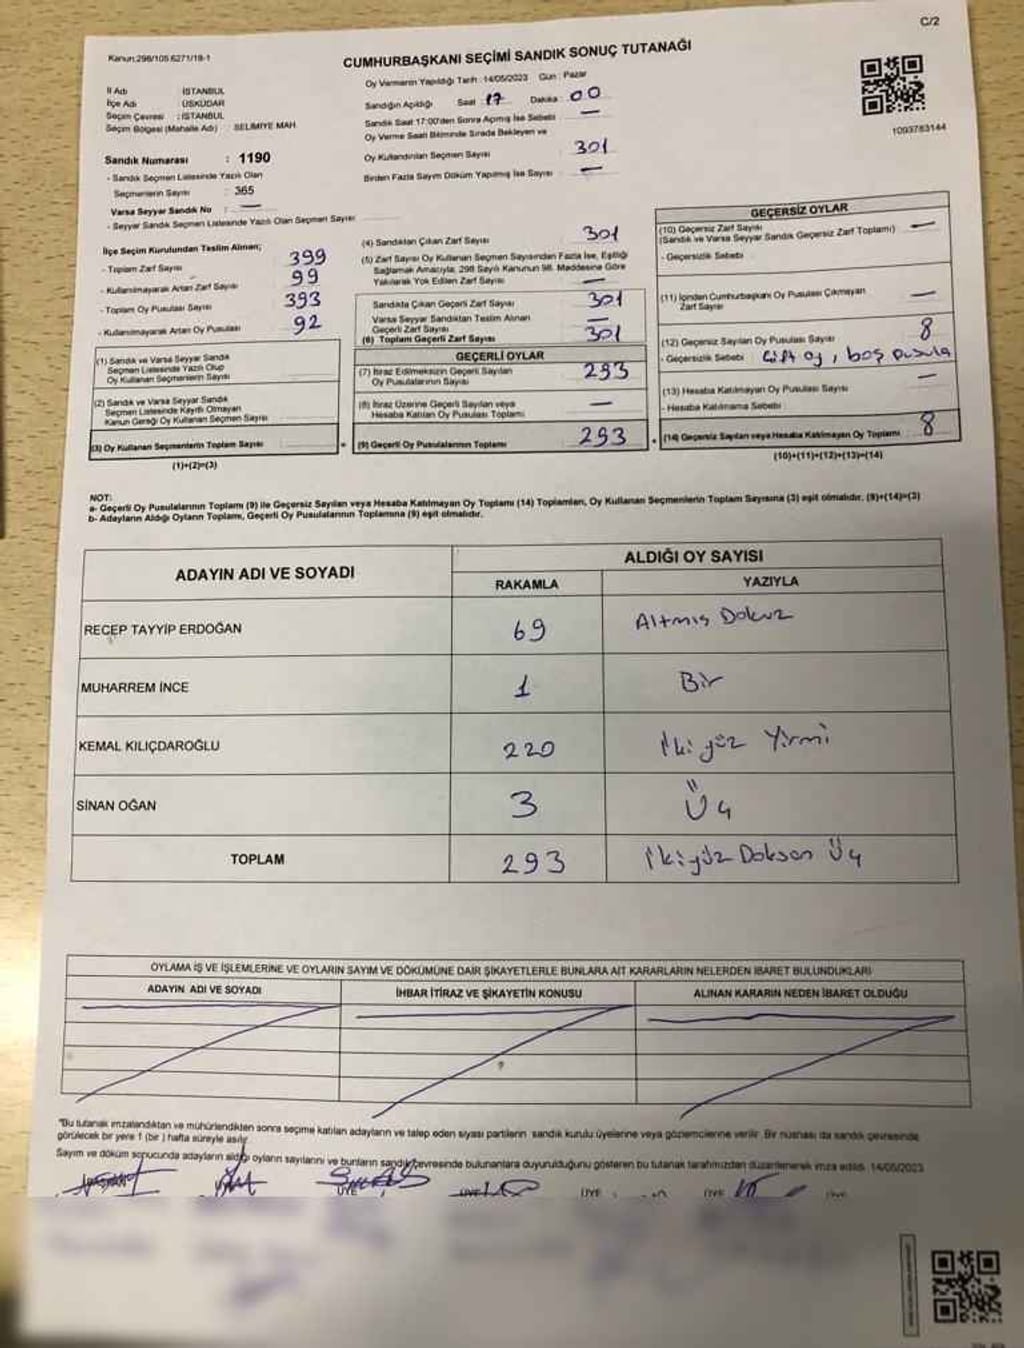 C/2
Kanun:298/105 6271/19-1
CUMHURBAŞKANI SEÇİMİ SANDIK SONUÇ TUTANAĞI
İl Adı İSTANBUL
İlçe Adı ÜSKÜDAR
Seçim Çevresi : İSTANBUL
Seçim Bölgesi (Mahalle Adı) : SELİMİYE MAH.
Sandık Numarası : 1190
- Sandık Seçmen Listesinde Yazılı Olan
Seçmenlerin Sayısı : 365
Varsa Seyyar Sandık No : —
- Seyyar Sandık Seçmen Listesinde Yazılı Olan Seçmen Sayısı
Oy Vermenin Yapıldığı Tarih : 14/05/2023 Gün : Pazar
Sandığın Açıldığı Saat 17 Dakika 00
Sandık Saat 17:00'den Sonra Açılmış İse Sebebi —
Oy Verme Saati Bitiminde Sırada Bekleyen ve
Oy Kullandırılan Seçmen Sayısı 301
Birden Fazla Sayım Döküm Yapılmış İse Sayısı —
1093783144
İlçe Seçim Kurulundan Teslim Alınan;
- Toplam Zarf Sayısı 399
- Kullanılmayarak Artan Zarf Sayısı 99
- Toplam Oy Pusulası Sayısı 393
- Kullanılmayarak Artan Oy Pusulası 92
(1) Sandık ve Varsa Seyyar Sandık
Seçmen Listesinde Yazılı Olup
Oy Kullanan Seçmenlerin Sayısı
(2) Sandık ve Varsa Seyyar Sandık
Seçmen Listesinde Kayıtlı Olmayan
Kanun Gereği Oy Kullanan Seçmen Sayısı
(3) Oy Kullanan Seçmenlerin Toplam Sayısı
(1)+(2)=(3)
(4) Sandıktan Çıkan Zarf Sayısı 301
(5) Zarf Sayısı Oy Kullanan Seçmen Sayısından Fazla İse, Eşitliği
Sağlamak Amacıyla, 298 Sayılı Kanunun 98. Maddesine Göre
Yakılarak Yok Edilen Zarf Sayısı —
Sandıkta Çıkan Geçerli Zarf Sayısı 301
Varsa Seyyar Sandıktan Teslim Alınan
Geçerli Zarf Sayısı —
(6) Toplam Geçerli Zarf Sayısı 301
GEÇERLİ OYLAR
(7) İtiraz Edilmeksizin Geçerli Sayılan
Oy Pusulalarının Sayısı 293
(8) İtiraz Üzerine Geçerli Sayılan veya
Hesaba Katılan Oy Pusulası Toplamı —
(9) Geçerli Oy Pusulalarının Toplamı 293
GEÇERSİZ OYLAR
(10) Geçersiz Zarf Sayısı —
(Sandık ve Varsa Seyyar Sandık Geçersiz Zarf Toplamı)
- Geçersizlik Sebebi
(11) İçinden Cumhurbaşkanı Oy Pusulası Çıkmayan
Zarf Sayısı —
(12) Geçersiz Sayılan Oy Pusulası Sayısı 8
- Geçersizlik Sebebi Çift oy, boş pusula
(13) Hesaba Katılmayan Oy Pusulası Sayısı —
- Hesaba Katılmama Sebebi
(14) Geçersiz Sayılan veya Hesaba Katılmayan Oy Toplamı 8
(10)+(11)+(12)+(13)=(14)
NOT:
a- Geçerli Oy Pusulalarının Toplamı (9) ile Geçersiz Sayılan veya Hesaba Katılmayan Oy Toplamı (14) Toplamları, Oy Kullanan Seçmenlerin Toplam Sayısına (3) eşit olmalıdır. (9)+(14)=(3)
b- Adayların Aldığı Oyların Toplamı, Geçerli Oy Pusulalarının Toplamına (9) eşit olmalıdır.
ADAYIN ADI VE SOYADI ALDIĞI OY SAYISI
RAKAMLA YAZIYLA
RECEP TAYYİP ERDOĞAN 69 Altmış Dokuz
MUHARREM İNCE 1 Bir
KEMAL KILIÇDAROĞLU 220 İkiyüz Yirmi
SİNAN OĞAN 3 Üç
TOPLAM 293 İkiyüz Doksan Üç
OYLAMA İŞ VE İŞLEMLERİNE VE OYLARIN SAYIM VE DÖKÜMÜNE DAİR ŞİKAYETLERLE BUNLARA AİT KARARLARIN NELERDEN İBARET BULUNDUKLARI
ADAYIN ADI VE SOYADI İHBAR İTİRAZ VE ŞİKAYETİN KONUSU ALINAN KARARIN NEDEN İBARET OLDUĞU
"Bu tutanak imzalandıktan ve mühürlendikten sonra seçime katılan adayların ve talep eden siyasi partilerin sandık kurulu üyelerine veya gözlemcilerine verilir. Bir nüshası da sandık çevresinde
görülecek bir yere 1 (bir) hafta süreyle asılır.
Sayım ve döküm sonucunda adayların aldığı oyların sayılarını ve bunların sandık çevresinde bulunanlara duyurulduğunu gösteren bu tutanak tarafımızdan düzenlenerek imza edildi. 14/05/2023
ÜYE ÜYE ÜYE ÜYE